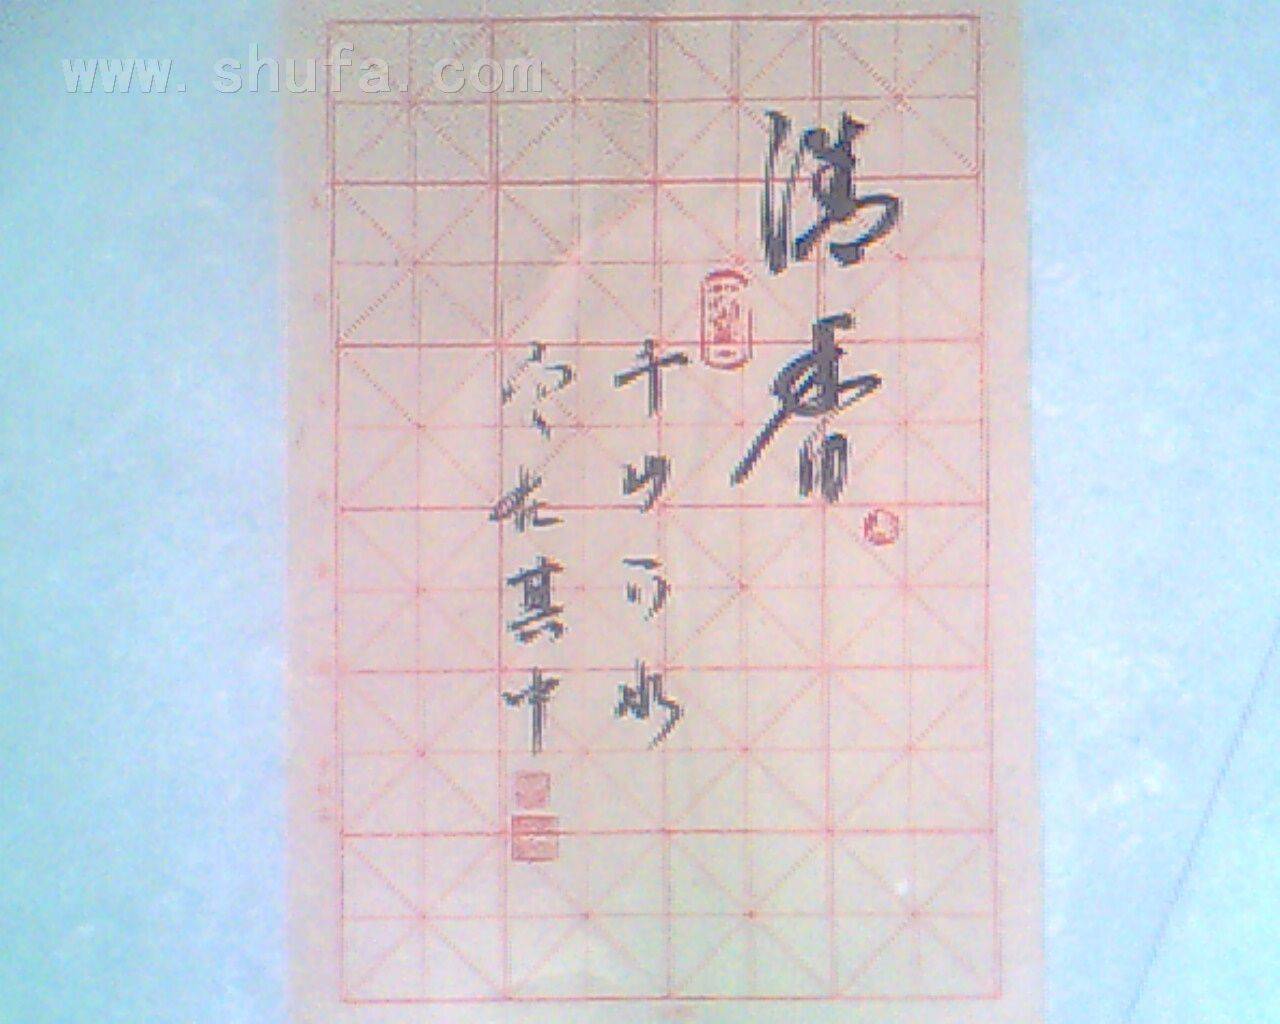 www.shufa.com
清香
千山可水
尽在其中